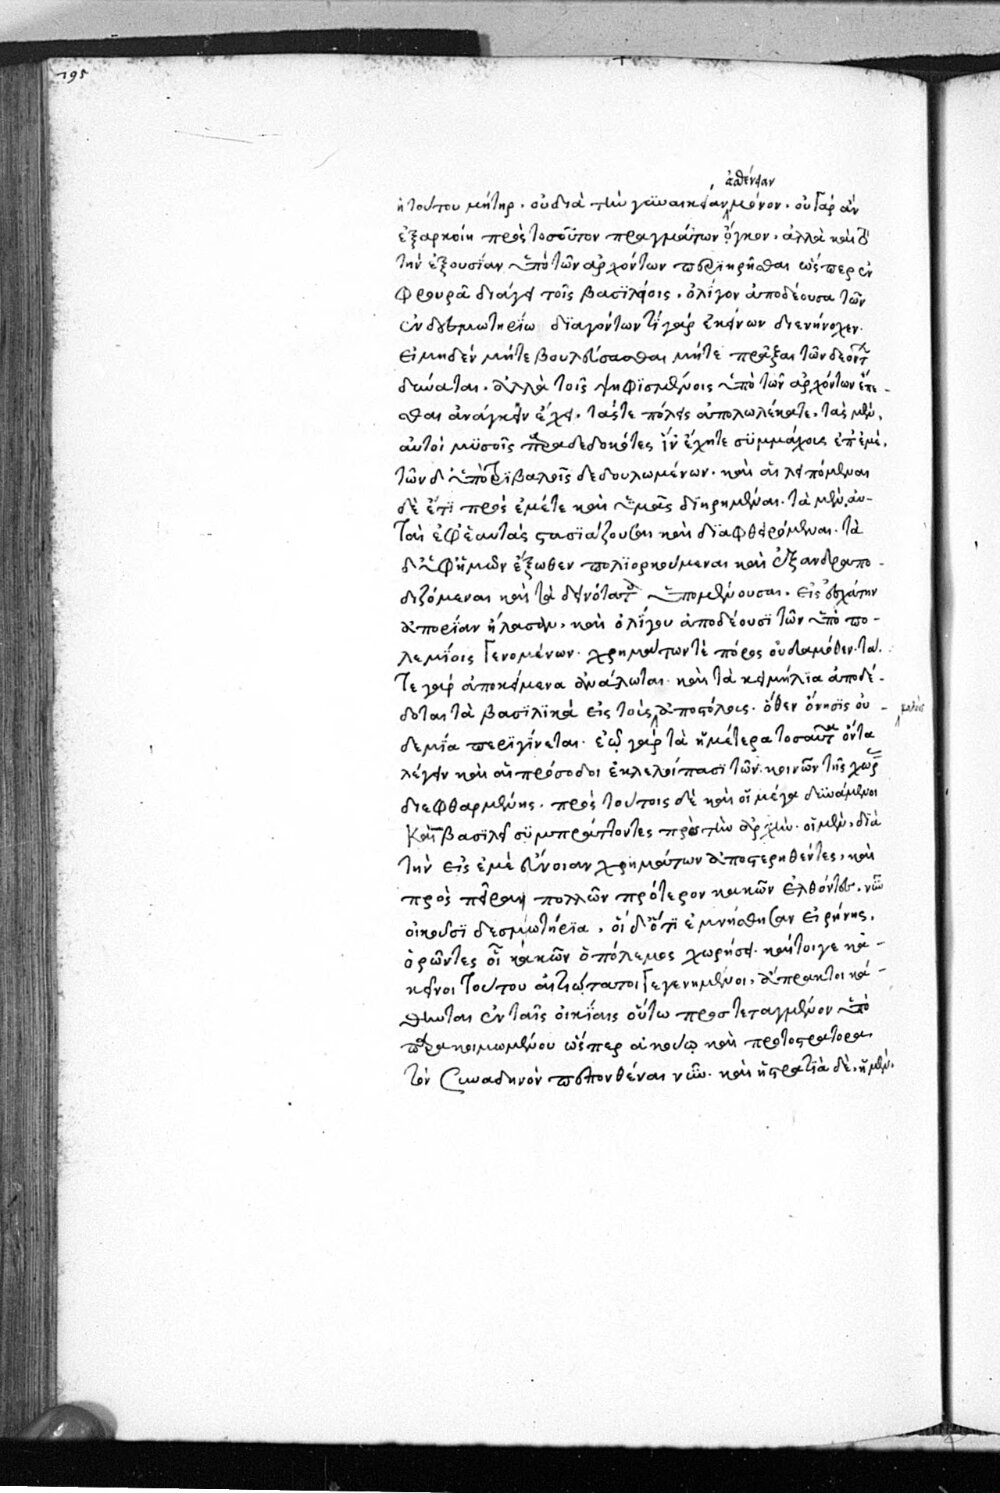 195
ἀσθένειαν
ἡ τούτου μήτηρ. οὐ διὰ τὴν γυναικείαν μόνον. οὐ γὰρ ἂν
ἐξαρκοίη πρὸς τοσοῦτον πραγμάτων ὄγκον. ἀλλὰ καὶ τὸ
τὴν ἐξουσίαν ὑπὸ τῶν ἀρχόντων περιηρῆσθαι ὥσπερ ἐν
φρουρᾶ διάγει τοῖς βασιλείοις. ὀλίγον ἀποδέουσα τῶν
ἐν δεσμωτηρίω διαγόντων τί γὰρ ἐκείνων διενήνοχεν.
εἰ μηδὲν μήτε βουλεύσασθαι μήτε πρᾶξαι τῶν δεόντων
δύναται. ἀλλὰ τοῖς ἐψηφισμένοις ὑπὸ τῶν ἀρχόντων ἕπε-
σθαι ἀνάγκην ἔχει. τάς τε πόλεις ἀπολωλέκατε. τὰς μὲν,
αὐτοὶ μυσοῖς παραδεδωκότες ἵν' ἔχητε συμμάχους ἐπ' ἐμὲ.
τῶν δ' ὑπὸ τριβαλοῖς δεδουλωμένων. καὶ αἱ λειπόμεναι
δὲ ἔτι πρὸς ἐμέ τε καὶ ὑμᾶς διηρημέναι. τὰ μὲν, αὐ-
ταὶ ἐφ' ἑαυτὰς στασιάζουσαι καὶ διαφθειρόμεναι. τὰ
δ' ὑφ' ἡμῶν ἔξωθεν πολιορκούμεναι καὶ ἐξανδραπο-
διζόμεναι καὶ τὰ δεινότατα ὑπομένουσαι. εἰς ἐσχάτην
ἀπορίαν ἤλασαν. καὶ ὀλίγου ἀποδέουσι τῶν ὑπὸ πο-
λεμίοις γενομένων. χρημάτων τὲ πόρος οὐδαμόθεν. τά
τε γὰρ ἀποκείμενα ἀνάλωται. καὶ τὰ κειμήλια ἀποδέ-
δοται τὰ βασιλικὰ εἰς τοὺς ἀποστόλους. ὅθεν ὄνησις οὐ-
δεμία περιγίνεται. ἐῶ γὰρ τὰ ἡμέτερα τοσαῦτα ὄντα
λέγειν καὶ αἱ πρόσοδοι ἐκλελοίπασι τῶν κοινῶν τῆς χώρας
διεφθαρμένης. πρὸς τούτοις δὲ καὶ οἱ μέγα δυνάμενοι
καὶ βασιλεῖ συμπράττοντες πρὸς τὴν ἀρχὴν. οἱ μὲν, διὰ
τὴν εἰς ἐμὲ εὔνοιαν χρημάτων ἀποστερηθέντες, καὶ
πρὸς πεῖραν πολλῶν πρότερον κακῶν ἐλθόντες. νῦν
οἰκοῦσι δεσμωτήρια. οἱ δ' ὅτι ἐμνήσθησαν εἰρήνης.
ὁρῶντες οἷ κακῶν ὁ πόλεμος χωρήσει. καίτοιγε κἀ-
κεῖνοι τούτου αἰτιώτατοι γεγενημένοι, ἄπρακτοι κά-
θηνται ἐν ταῖς οἰκίαις οὕτω προστεταγμένον ὑπὸ
παρακοιμωμένου ὥσπερ ἀκούω καὶ πρωτοστράτορα
τὸν Συναδηνὸν πεπονθέναι νῦν. καὶ ἡ στρατιὰ δὲ, ἡ μὲν.